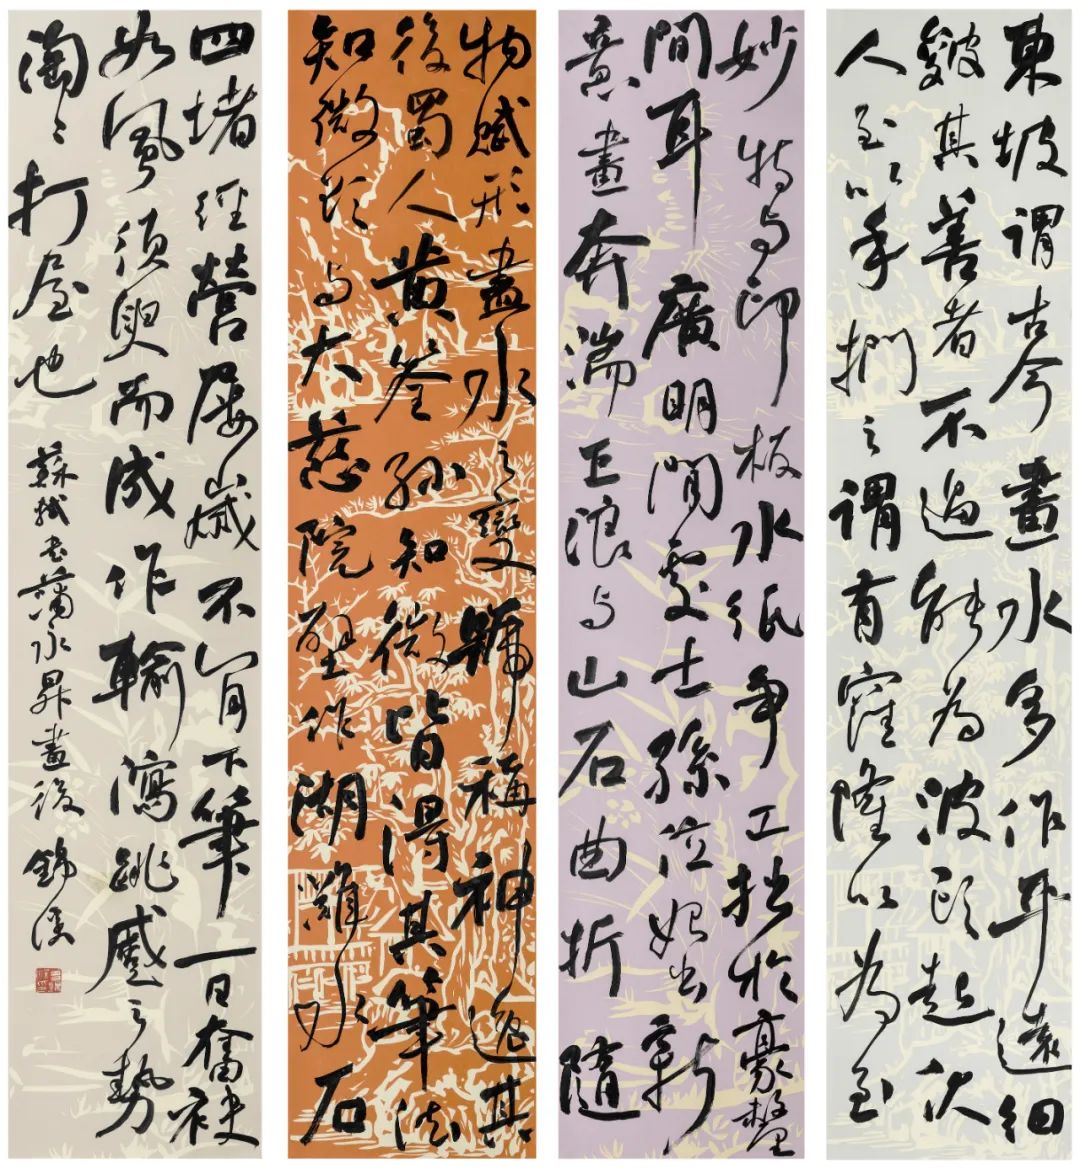 東坡謂古今畫水多作平遠細
皺其善者不過能為波頭起伏
人至以手捫之謂有窪隆以為至
妙特与印板水紙争工拙於豪釐
間耳廣明間處士孫位始出新
意畫奔湍巨浪与山石曲折隨
物賦形盡水之變號稱神逸其
後蜀人黃筌孫知微皆得其筆法
知微欲与大慈院壁作湖灘水石
四堵經營屢歲不肯下筆一日奮袂
如風須臾而成作輸瀉跳蹙之勢
淘〻打屋也
蘇軾書蒲永昇畫後 錦